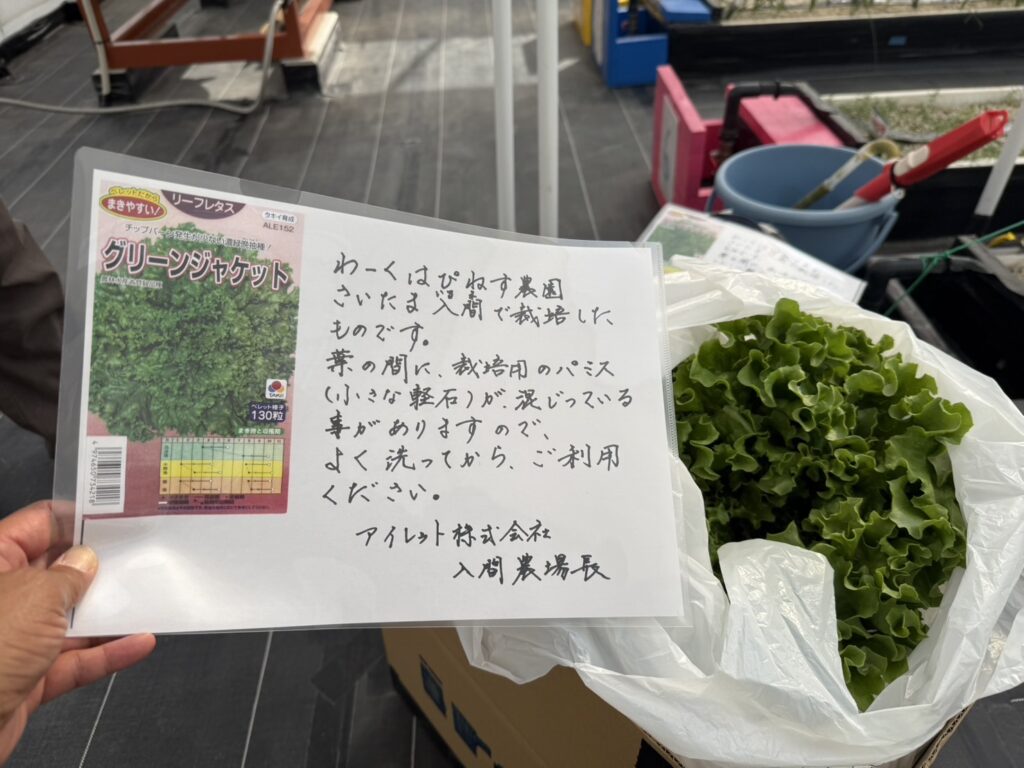 ペレットだから
まきやすい!
リーフレタス
タキイ育成
ALE152
グリーンジャケット
TAKII
ペレット種子
130粒
まき時と収穫期
4 974650 734218
わーくはぴねす農園
さいたま入間で栽培した、
ものです。
葉の間に、栽培用のパミス
(小さな軽石)が、混じっている
事がありますので、
よく洗ってから、ご利用
ください。
アイレット株式会社
入間農場長